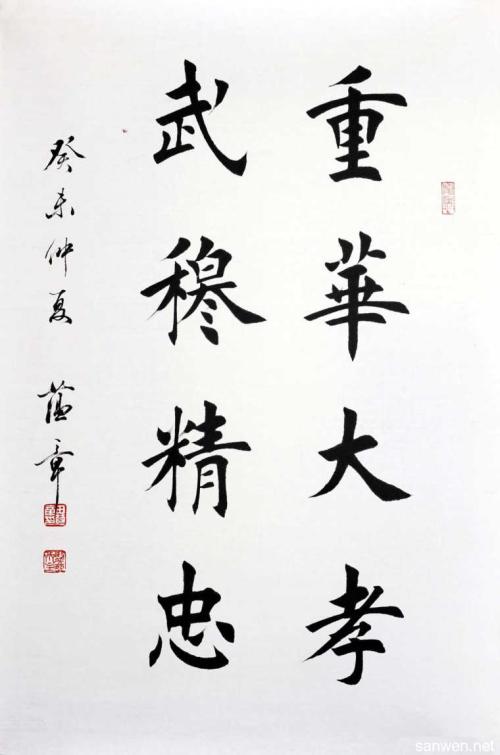 重華大孝
武穆精忠
癸未仲夏 蘊章
sanwen.net